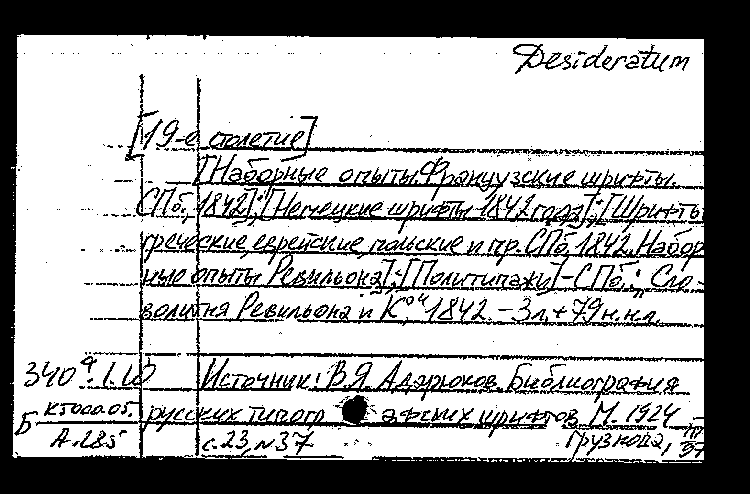 Desideratum
[19-е столетие]
[Наборные опыты. Французские шрифты.
СПб, 1842]; [Немецкие шрифты 1842 года]; [Шрифты
греческие, еврейские, польские и пр. СПб, 1842. Набор-
ные опыты Ревильона]; [Политипажи] - СПб.: Сло-
волитня Ревильона и К°, 1842. - 3 л. + 79 н.нл.
340 4.1.10 Источник: В.Я. Адарюков. Библиография
Б К5000.05. русских типографских шрифтов. М. 1924
А.285 с. 23, №37 Грузнова,